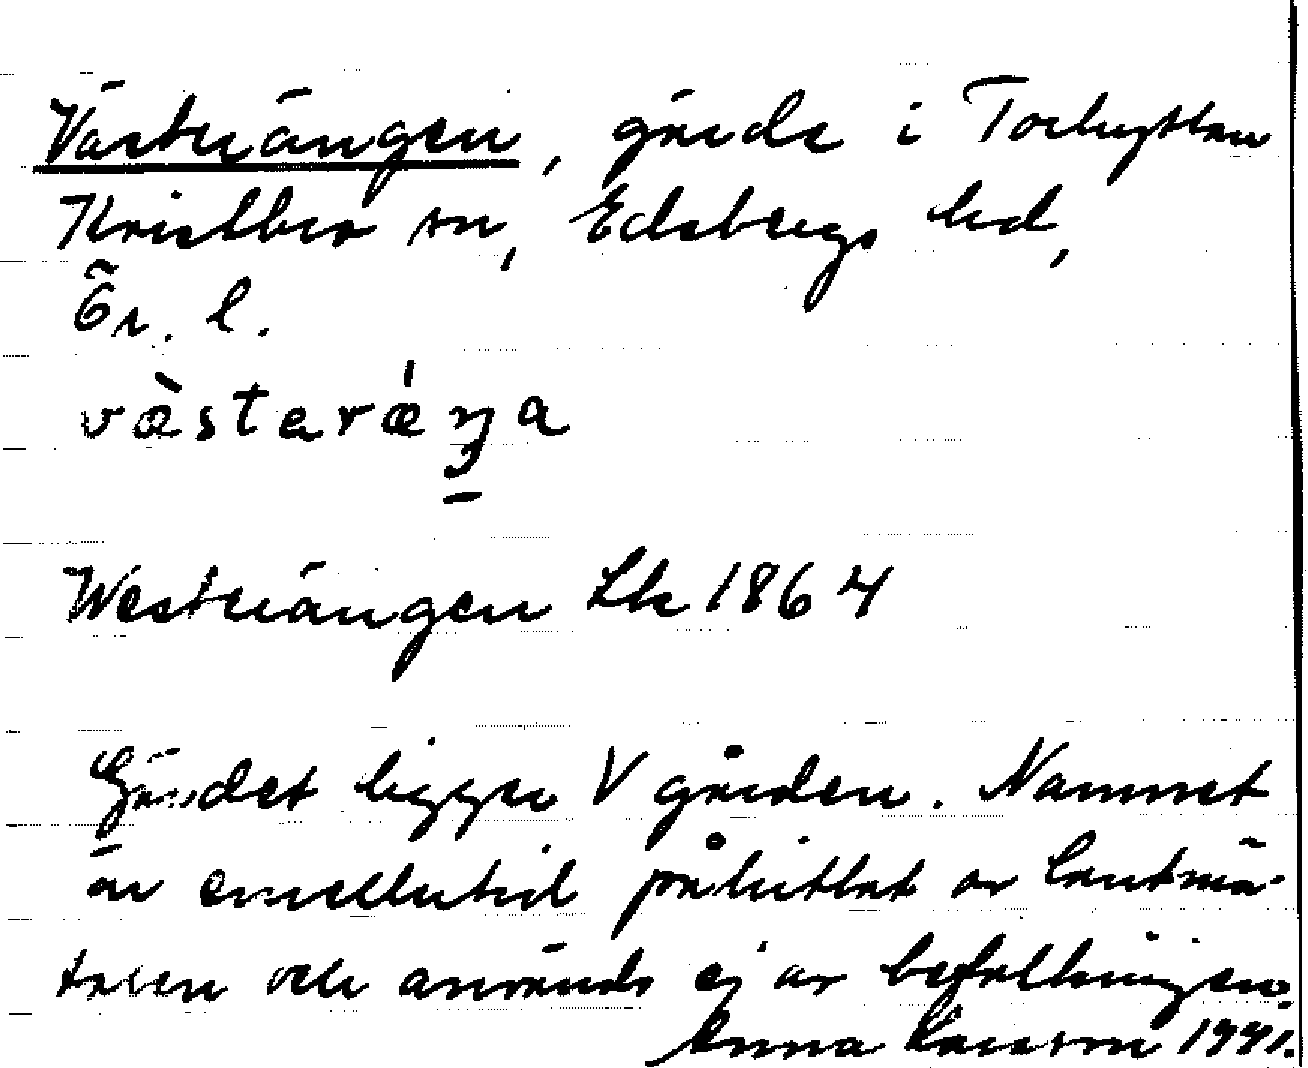 Västerängen, gärde i Torhyttan
Kvistbro sn, Edsbergs hd,
Ör. l.
vàstərǽŋa
Westerängen Lk 1864
Gärdet ligger V gården. Namnet
är emellertid påhittat av lantmä-
taren och används ej av befolkningen.
Anna Larsson 1941.